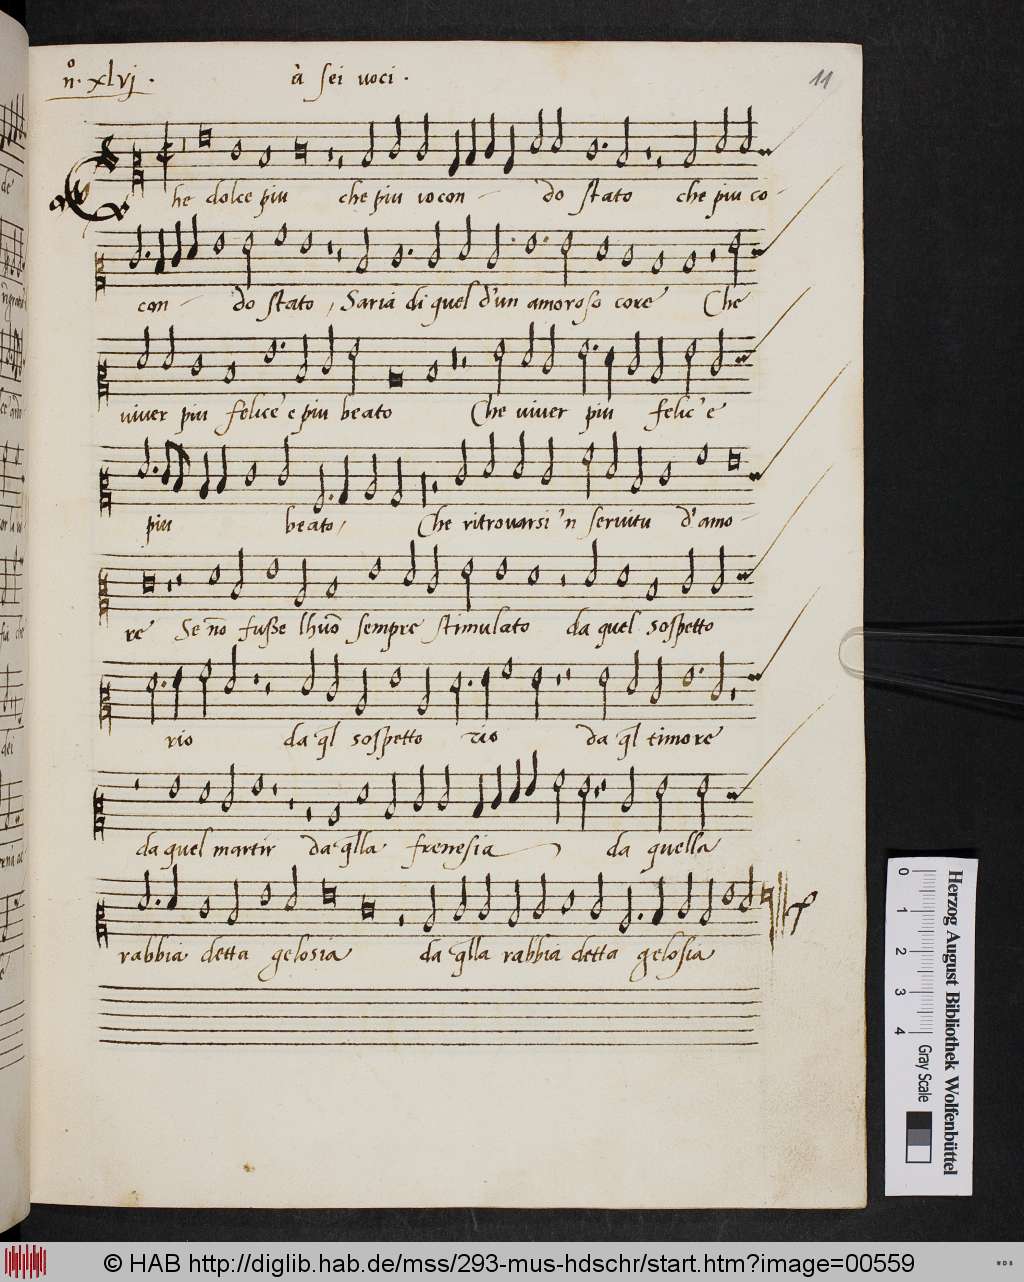 n.º xlvj. à sei voci. 11
he dolce piu che piu iocon - do stato che piu co -
con - do stato, Saria di quel d'un amoroso core Che
viver piu felice e piu beato Che viver piu felic' e
piu beato, Che ritrovarsi 'n servitu d'amo -
re Se nõ fusse lhuõ sempre stimulato da quel sospetto
rio da q̃l sospetto rio da q̃l timore
da quel martir da q̃lla frenesia da quella
rabbia detta gelosia da q̃lla rabbia detta gelosia
Herzog August Bibliothek Wolfenbüttel
0 1 2 3 4 Gray Scale
© HAB http://diglib.hab.de/mss/293-mus-hdschr/start.htm?image=00559